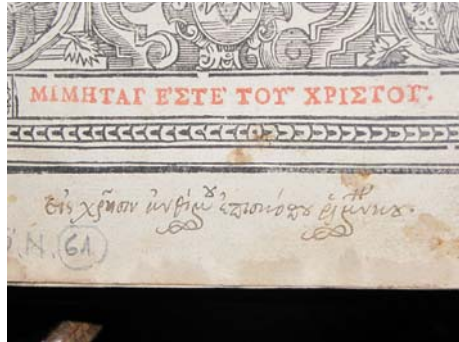 ΜΙΜΗΤΑΙ ἘΣΤΕ' ΤΟΥ͂ ΧΡΙΣΤΟΥ͂.
Εἰς χρῆσιν ἀνθίμου ἐπισκόπου
N. 61